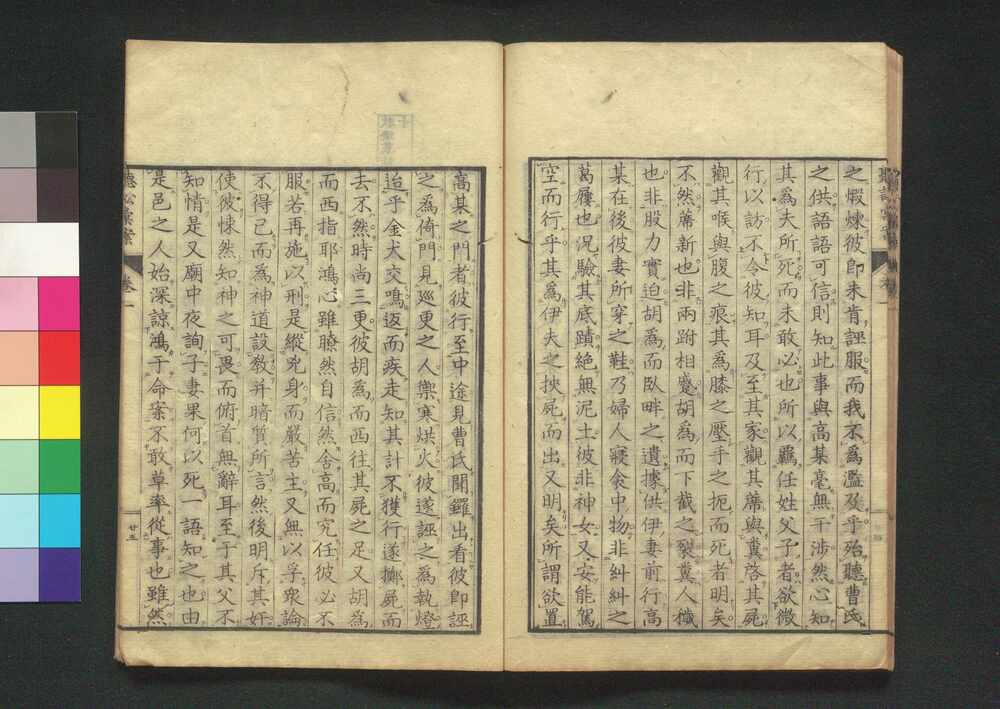 之煆煉彼即未肯誣服而我不為濫及乎殆聽曹氏
之供語語可信則知此事與高某毫無干涉然心知
其為夫所死而未敢必也所以羈任姓父子者欲微
行以訪不令彼知耳及至其家觀其席與糞啓其屍
觀其喉與腹之痕其為膝之壓手之扼而死者明矣
不然蓆新也非兩跗相蹙胡為而下截之裂糞人穢
也非股力實迫胡為而臥畔之遺據供伊妻前行高
某在後彼妻所穿之鞋乃婦人寢衾中物非糾糾之
葛屨也况驗其底蹟絶無泥土彼非神女又安能駕
空而行乎其為伊夫之抰屍而出又明矣所謂欲置
高某之門者彼行至中途見曹氏聞鑼出看彼即誣
之為倚門見廵更之人禦寒烘火彼遂誣之為執燈
迨乎金犬交鳴返而疾走知其計不獲行遂擲屍而
去不然時尚三更彼胡為而西往其屍之足又胡為
而西指耶鴻心雖瞭然自信然舍高而究任彼必不
服若再施以刑是縱兇身而嚴苦主又無以孚衆論
不得已而為神道設教并暗質所言然後明斥其奸
使彼悚然知神之可畏而俯首無辭耳至于其父不
知情是又廟中夜詢子妻果何以死一語知之也由
是邑之人始深諒鴻于命案不敢草率從事也雖然
卷一
廿五